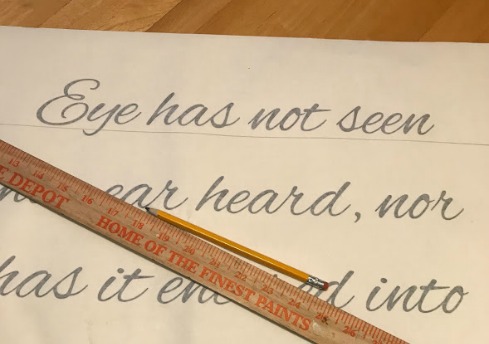 Eye has not seen
ear heard, nor
has it into
E DEPOT
HOME OF THE FINEST PAINTS
13 14 15 16 17 18 19 20 21 22 23 24 25 26